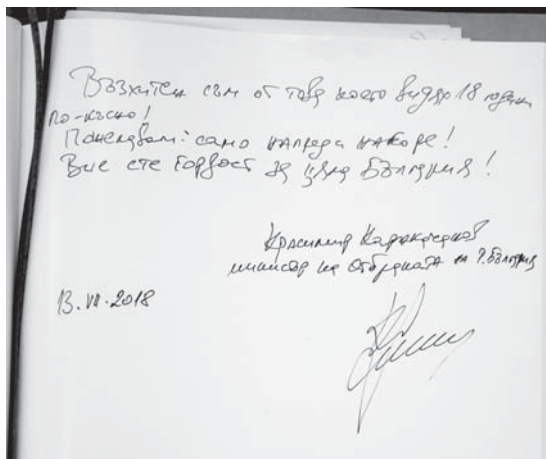 Възхитен съм от това което видях 18 години
по-късно!
Пожелавам: само напред и нагоре!
Вие сте гордост за цяла България!
Красимир Каракачанов
министър на отбраната на Р. България
13.VII.2018